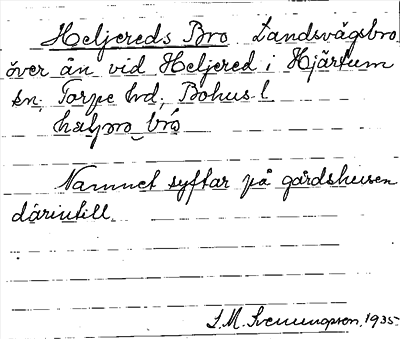 Heljereds Bro Landsvägsbro
över ån vid Heljered i Hjärtum
sn, Torpe hd, Bohus l.
Namnet syftar på gårdshusen
därintill.
1935.